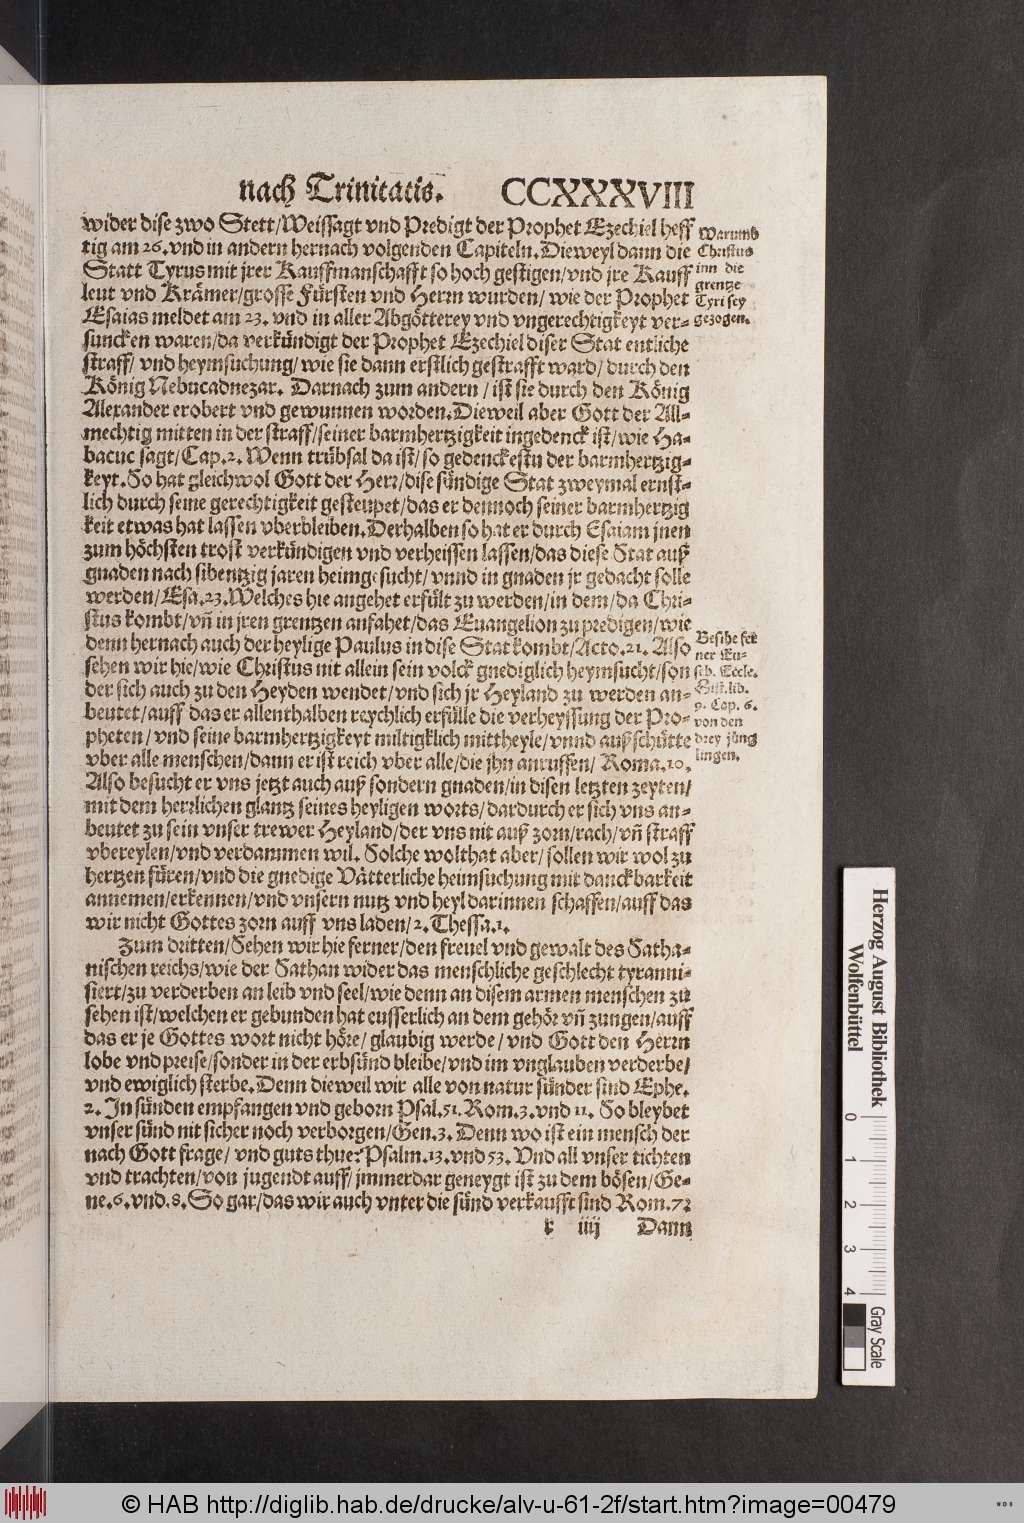 nach Trinitatis. CCXXXVIII
wider dise zwo Stett/Weissagt vnd Predigt der Prophet Ezechiel heff
tig am 26. vnd in andern hernach volgenden Capiteln. Dieweyl dann die
Statt Tyrus mit jrer Kauffmanschafft so hoch gestigen/vnd jre Kauff
leut vnd Krämer/grosse Fürsten vnd Herrn wurden/ wie der Prophet
Esaias meldet am 23. vnd in aller Abgötterey vnd vngerechtigkeyt ver-
suncken waren/da verkündigt der Prophet Ezechiel diser Stat entliche
straff/ vnd heymsuchung/ wie sie dann erstlich gestrafft ward/ durch den
König Nebucadnezar. Darnach zum andern / ist sie durch den König
Alexander erobert vnd gewunnen worden. Dieweil aber Gott der All-
mechtig mitten in der straff/seiner barmhertzigkeit ingedenck ist/wie Ha-
bacuc sagt/Cap.2. Wenn trübsal da ist/ so gedenckestu der barmhertzig-
keyt. So hat gleichwol Gott der Herr/dise sündige Stat zweymal ernst-
lich durch seine gerechtigkeit gesteupet/das er dennoch seiner barmhertzig
keit etwas hat lassen vberbleiben. Derhalben so hat er durch Esaiam jnen
zum höchsten trost verkündigen vnd verheissen lassen/das diese Stat auß
gnaden nach sibentzig jaren heimgesucht/ vnnd in gnaden jr gedacht solle
werden/Esa.23. Welches hie angehet erfült zu werden/in dem/da Chri-
stus kombt/vñ in jren grentzen anfahet/das Euangelion zu predigen/wie
denn hernach auch der heylige Paulus in dise Stat kombt/Acto.21. Also
sehen wir hie/wie Christus nit allein sein volck gnediglich heymsucht/son
der sich auch zu den Heyden wendet/vnd sich jr Heyland zu werden an-
beutet/auff das er allenthalben reychlich erfülle die verheyssung der Pro-
pheten/ vnd seine barmhertzigkeyt miltigklich mittheyle/vnnd außschütte
vber alle menschen/dann er ist reich vber alle/die jhn anruffen/ Roma.10.
Also besucht er vns jetzt auch auß sondern gnaden/in disen letzten zeyten/
mit dem herrlichen glantz seines heyligen worts/dardurch er sich vns an-
beutet zu sein vnser trewer Heyland/der vns nit auß zorn/rach/vñ straff
vbereylen/vnd verdammen wil. Solche wolthat aber/ sollen wir wol zu
hertzen füren/vnd die gnedige Vätterliche heimsuchung mit danckbarkeit
annemen/erkennen/vnd vnsern nutz vnd heyl darinnen schaffen/auff das
wir nicht Gottes zorn auff vns laden/2. Thessa.1.
Zum dritten/Sehen wir hie ferner/den freuel vnd gewalt des Satha-
nischen reichs/wie der Sathan wider das menschliche geschlecht tyranni-
siert/zu verderben an leib vnd seel/wie denn an disem armen menschen zu
sehen ist/welchen er gebunden hat eusserlich an dem gehör vñ zungen/auff
das er je Gottes wort nicht höre/ glaubig werde/ vnd Gott den Herrn
lobe vnd preise/sonder in der erbsünd bleibe/vnd im vnglauben verderbe/
vnd ewiglich sterbe. Denn dieweil wir alle von natur sünder sind Ephe.
2. In sünden empfangen vnd geborn Psal.51. Rom.3. vnd 11. So bleybet
vnser sünd nit sicher noch verborgen/Gen.3. Denn wo ist ein mensch der
nach Gott frage/ vnd guts thue? Psalm.13. vnd 53. Vnd all vnser tichten
vnd trachten/von jugendt auff/ jmmerdar geneygt ist zu dem bösen/Ge-
ne.6.vnd.8. So gar/das wir auch vnter die sünd verkaufft sind Rom.7
r iiij Dann
Warumb
Christus
inn die
grentze
Tyri sey
gezogen.
Besihe fer
ner Eu-
seb. Eccle.
Hist. lib.
9. Cap. 6.
von den
drey jüng
lingen.
Herzog August Bibliothek
Wolfenbüttel
0 1 2 3 4
Gray Scale
© HAB http://diglib.hab.de/drucke/alv-u-61-2f/start.htm?image=00479
WDB